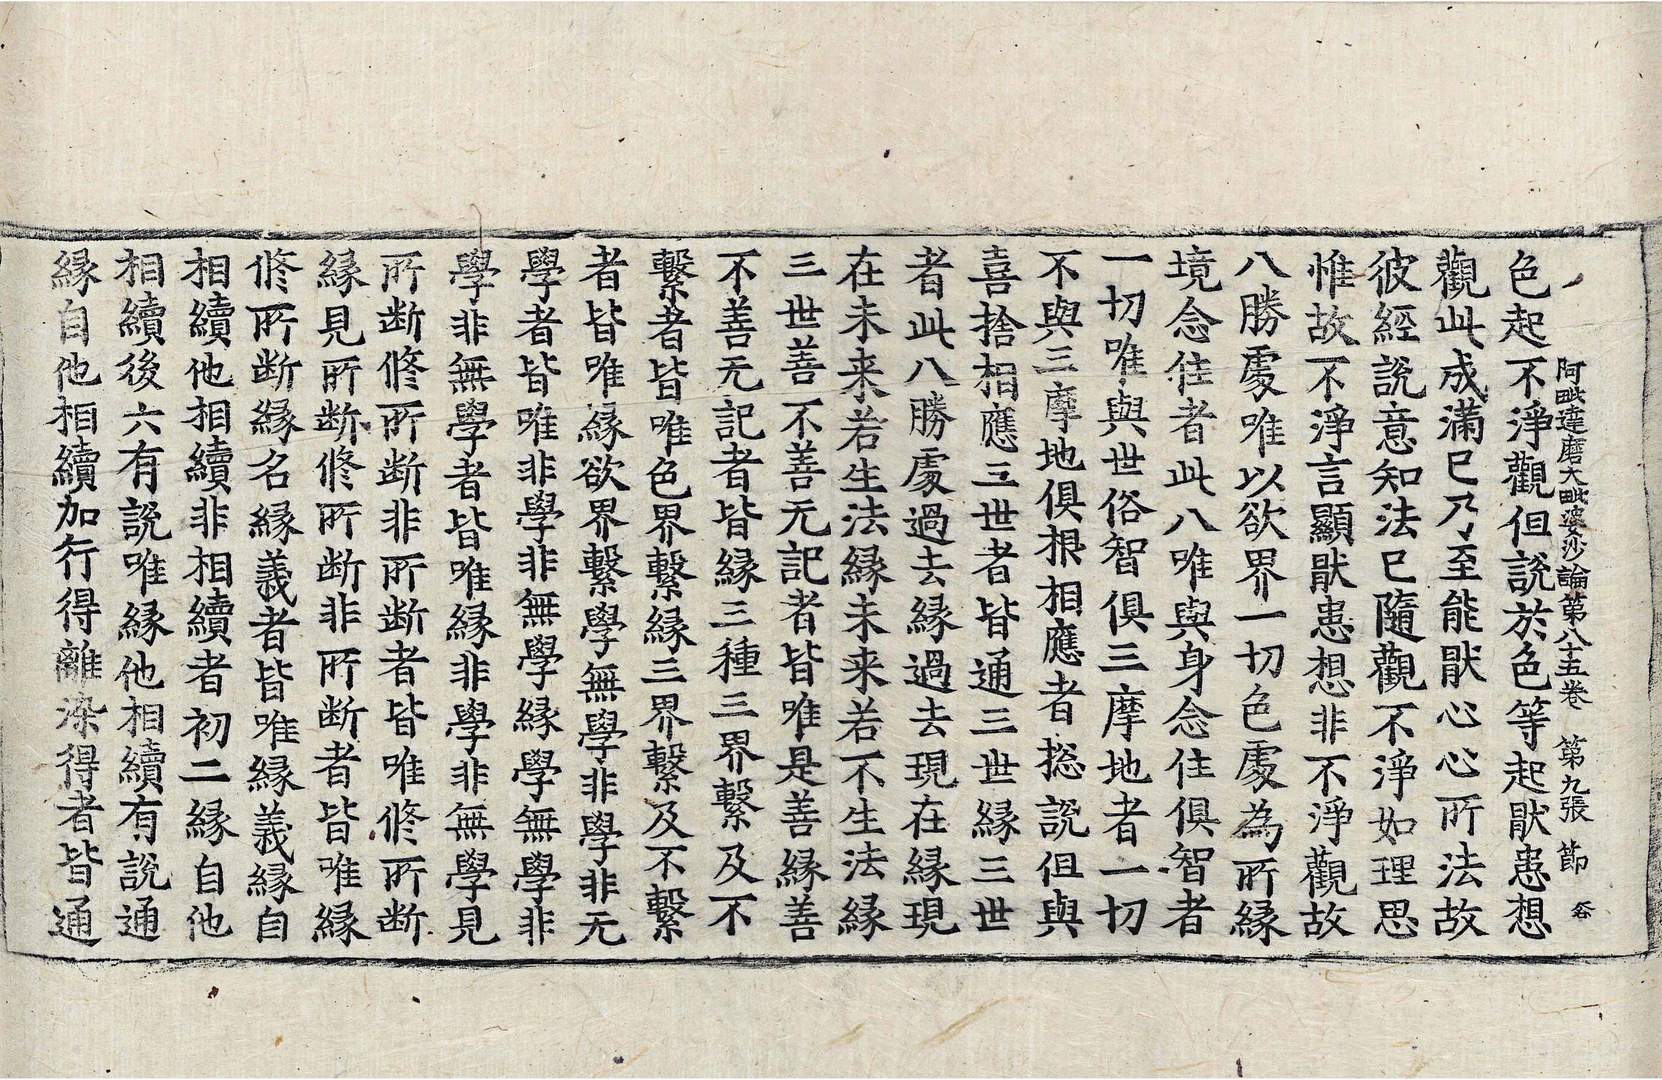 阿毗達磨大毗婆沙論第八十五卷 第九張 節
色起不淨觀但說於色等起猒患想
觀此成滿已乃至能猒心心所法故
彼經說意知法已隨觀不淨如理思
惟故不淨言顯猒患想非不淨觀故
八勝處唯以欲界一切色處為所緣
境念住者此八唯與身念住俱智者
一切唯與世俗智俱三摩地者一切
不與三摩地俱根相應者捴說但與
喜捨相應三世者皆通三世緣三世
者此八勝處過去緣過去現在緣現
在未来若生法緣未来若不生法緣
三世善不善无記者皆唯是善緣善
不善无記者皆緣三種三界繫及不
繫者皆唯色界繫緣三界繫及不繫
者皆唯緣欲界繫學無學非學非无
學者皆唯非學非無學緣學無學非
學非無學者皆唯緣非學非無學見
所断修所断非所断者皆唯修所断
緣見所断修所断非所断者皆唯緣
修所断緣名緣義者皆唯緣義緣自
相續他相續非相續者初二緣自他
相續後六有說唯緣他相續有說通
緣自他相續加行得離染得者皆通